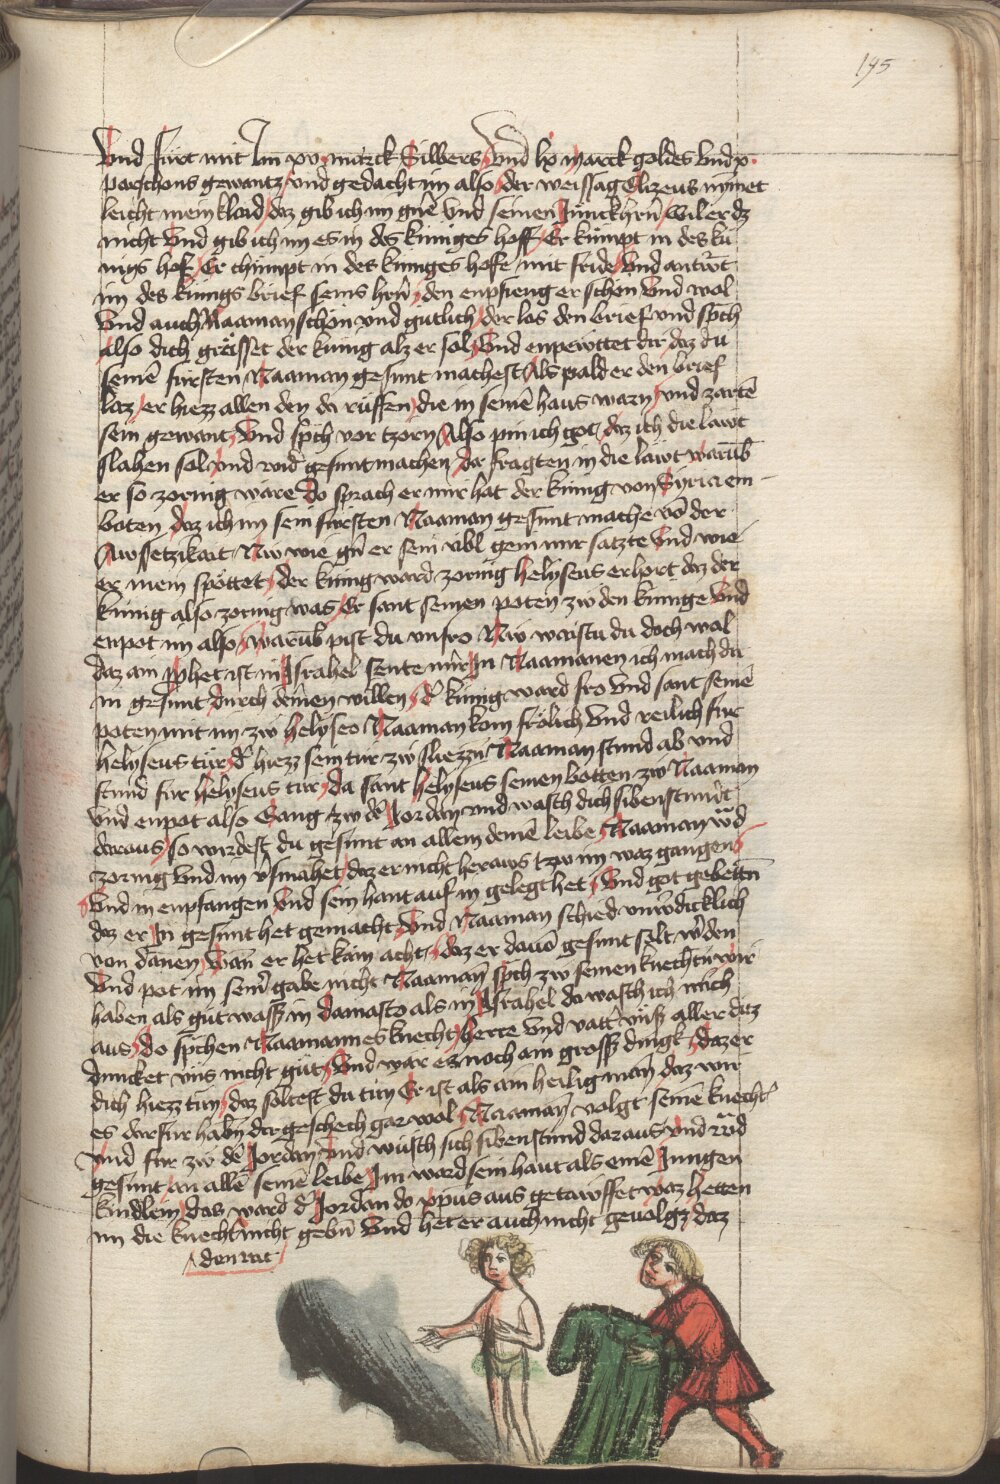 195
Vnd fürt mit Im xv marck Silbers vnd lx marck goldes vnd x
parchons gewantz vnd gedacht im also der weissag Elizeus nymet
leicht mein klaid daz gib ich im gnē vnd seinen Junckhrn̄ wil er dz
nicht vnd gib ich im es in des küniges hoff Er kümpt in des kü
nigs hof Er chümpt in des küniges hofe mit fride vnd antw̄t
im des künigs brief seins hrn̄ den enpfieng er schon vnd wol
Vnd auch Naaman schon vnd gütlich der las den brief vnd sp̄ch
also dich grüsset der künig alz er sol vnd enpewttet dir daz du
seinē fürsten Naaman gesunt machest Als pald er den brief
laz er hiezz allen den da rüffen die in seinē haus warn vnd zartē
sein gewant vnd sp̄ch vor tzorn Also pin ich got daz ich die lawt
slahen sol vnd wid̄ gesunt machen da fragten in die läwt warūb
er so zornig wäre Do sprach er mir hat der künig von Syria en
boten daz ich im sein fürsten Naaman gesunt mache vō der
Awssetzikait Nw wie gn̄ er sein übl gem mir satzte vnd wie
er mein spöttet der künig ward zornig helyseus erhort daz der
künig also zornig was Er sant seinen poten zw den künige vnd
enpot im also warūb pist du vnfro Nw waistu du doch wol
daz ain p̄phet ist in Israhel sente mir In Naamanen ich mach dir
in gesunt durch deinen willen d̄ künig ward fro vnd sant seinē
poten mit im zw helyseo Naaman kom frölich vnd reilich für
helyseus tür d̄ hiezz sein tür zw sliezzn Naaman stund ab vnd
stund für helyseus tür da sant helyseus seinen botten zw Naaman
vnd enpot also Gang zw dē Jordan vnd wasch dich sibenstunt
daraus so wirdest du gesunt an allem deinē leibe Naaman w̄d
zornig vnd im v̄smahet daz er nicht heraws tzw im waz gangen
Vnd in enpfangen vnd sein hant auf in gelegt het vnd got gebettn̄
daz er In gesunt het gemacht Vnd Naaman schied vnw̄dicklich
von dānen wan er het kain acht daz er dauō gesunt solt w̄den
Vnd pot im sein̄ gabe nicht Naaman sp̄ch zw seinen knechtn̄ wir
haben als gut wasser in damasco als in Israhel da wasch ich mich
aus do sp̄chen Naamannes knecht herre vnd vatt̄ vnser aller daz
duncket vns nicht gut vnd wär es noch ain gross dingk daz er
dich hiezz tün daz soltest du tün Er ist als ain heilig man daz wir
es darfür habn̄ daz geschech gar wol Naaman volgt seinē knecht̄
vnd für zw dē Jordan vnd wüsch sich sibenstund daraus vnd w̄d
gesunt an allē seinē leibe Im ward sein haut als einē Jungen
kindlein das ward d̄ Jordan do xpūs aus getawffet waz hetten
im die knecht nicht gebn̄ vnd het er auch nicht geuolgt daz
den rat